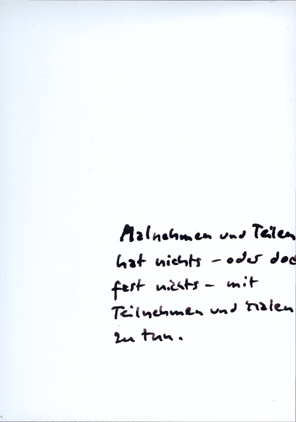 Malnehmen und Teilen
hat nichts – oder doc
fast nichts – mit
Teilnehmen und Malen
zu tun.